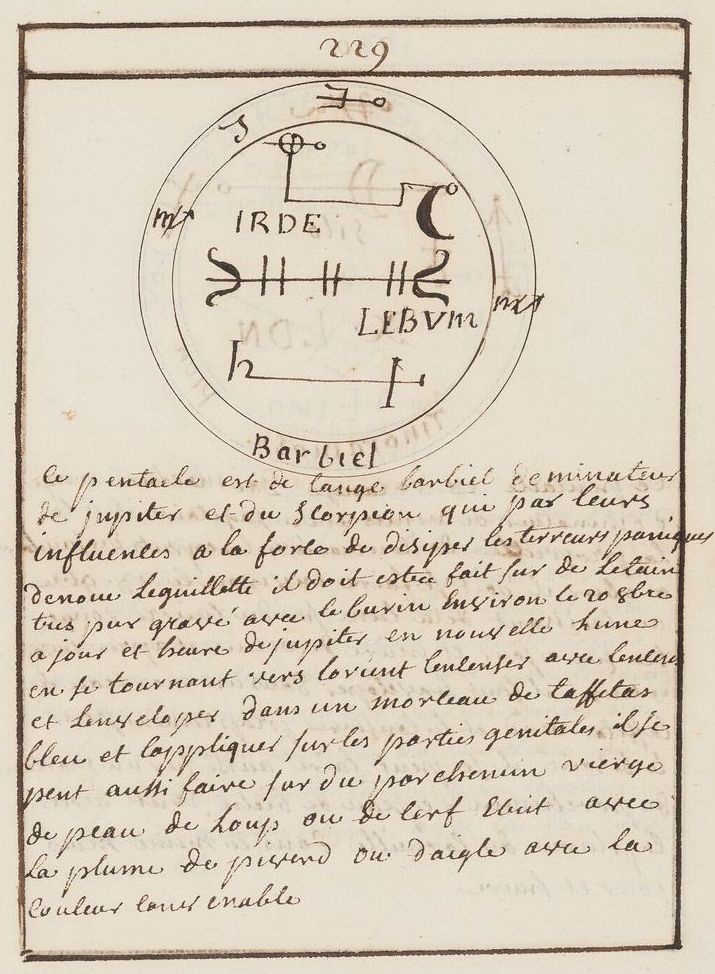 229
IRDE
LEBVM
Barbiel
Ce pentacle est de lange barbiel deminateur
de jupiter et du scorpion qui par leurs
influences a la force de disiper les terreurs paniques
denoue Leguillette il doit estre fait sur de Letain
tres pur gravé avec le burin Environ le 20 8bre
a jour et heure de jupiter en nouvelle Lune
en se tournant vers lorient lenlenser avec lenlens
et Lenveloper dans un morleau de taffetas
bleu et lappliquer sur les parties genitales il se
peut aussi faire sur du parchemin vierge
de peau de Loup ou de lerf Ecrit avec
La plume de piverd ou daigle avec la
Couleur convenable